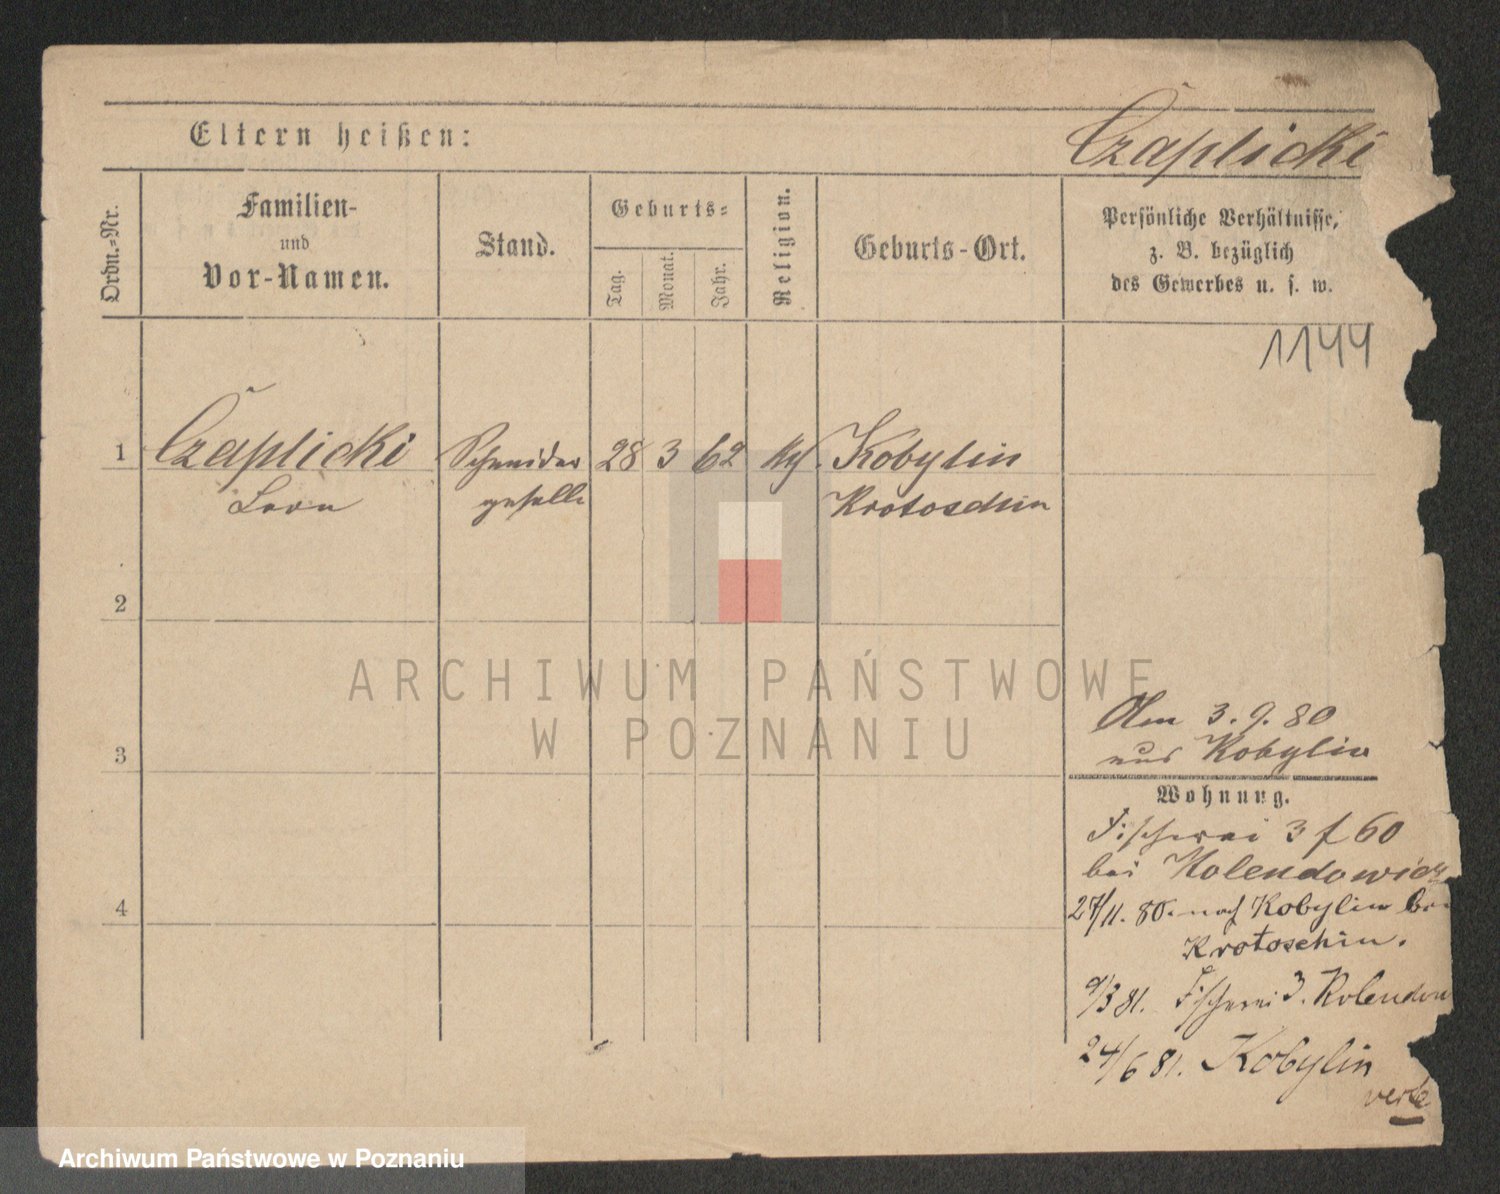 Eltern heißen:
Czaplicki
Ordn.-Nr.
Familien-
und
Vor-Namen.
Stand.
Geburts-
Tag.
Monat.
Jahr.
Religion.
Geburts-Ort.
Persönliche Verhältnisse,
z. B. bezüglich
des Gewerbes u. s. w.
1144
1 Czaplicki Schneider 28 3 62 Kobylin
Leon geselle Krotoschin
2
ARCHIWUM PAŃSTWOWE
W POZNANIU
3
4
3. 9. 80
aus Kobylin
Wohnung.
Fischerei 3 f 60
bei Kolendowicz
27/11. 80. nach Kobylin bei
Krotoschin.
9/3 81. Fischerei 3. Kolendow
24/6 81. Kobylin
Archiwum Państwowe w Poznaniu